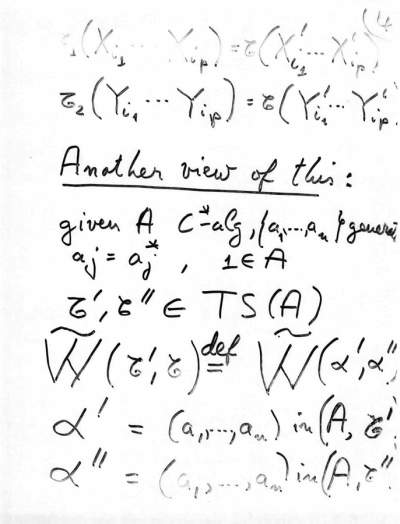 (4
τ₁(X_{i₁} ⋯ X_{iₚ}) = τ(X'_{i₁} ⋯ X'_{iₚ})
τ₂(Y_{i₁} ⋯ Y_{iₚ}) = τ(Y'_{i₁} ⋯ Y'_{iₚ}
Another view of this:
given A C*-alg, {a₁ ⋯ aₙ} genera
aⱼ = aⱼ* , 1 ∈ A
τ', τ'' ∈ TS(A)
W̃(τ', τ) def= W̃(α', α''
α' = (a₁, ..., aₙ) in (A, τ'
α'' = (a₁, ..., aₙ) in (A, τ''